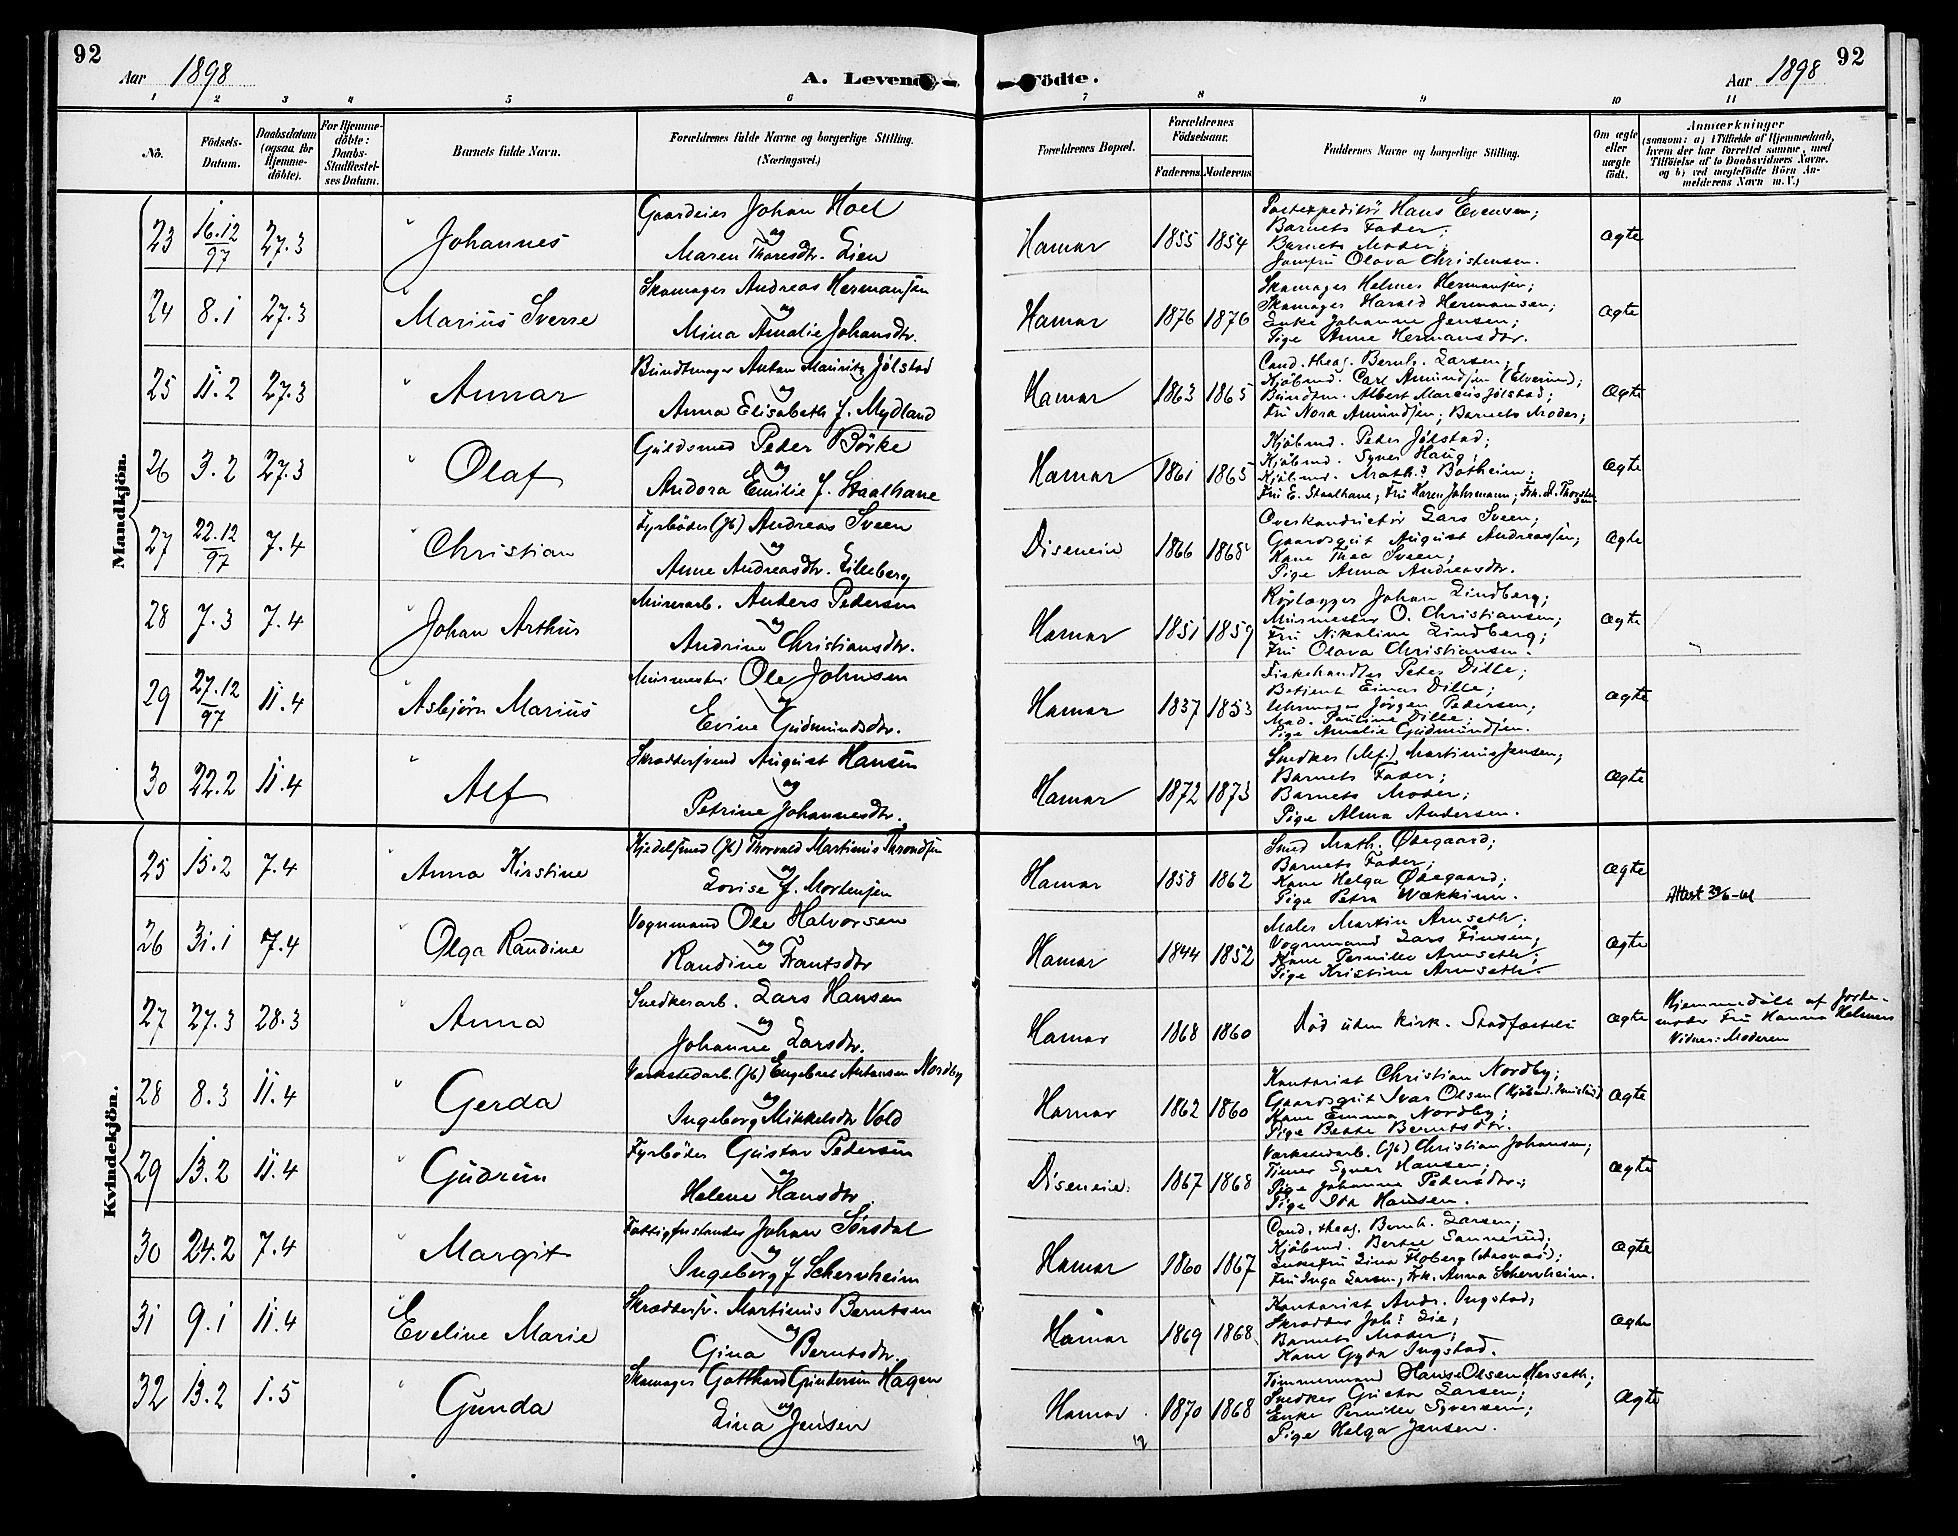 92
Aar 1898
A. Levende
Födte.
Aar 1898
92
1 2 3 4 5 6 7 8 9 10 11
No.
Födsels-Datum.
Daabsdatum (ogsaa for Hjemme-döbte).
For Hjemme-döbte: Daabs-Stadfæstel-ses Datum.
Barnets fulde Navn.
Forældrenes fulde Navne og borgerlige Stilling. (Næringsvei.)
Forældrenes Bopæl.
Forældrenes Födselsaar.
Faderens Moderens
Faddernes Navne og borgerlige Stilling.
Om ægte eller uægte födt.
Anmærkninger
(saasom: a) i Tilfælde af Hjemmedaab, hvem der har forrettet samme, med Tilföielse af to Daabsvidners Navne, og b) ved uægtefödte Börn An-melderens Navn m. V.)
Mandkjön.
23 16.12/97 27.3 " Johannes
Gaardeier Johan Hoel
og
Maren Thoresdtr. Lien
Hamar 1855 1854
Postexpeditör Hans Evensen;
Barnets Fader;
Barnets Moder;
Jomfru Olava Christensen.
Ægte
24 8.1 27.3 " Marius Sverre
Skomager Andreas Hermansen
og
Mina Amalie Johansdtr.
Hamar 1876 1876
Skomager Helmer Hermansen;
Skomager Harald Hermansen;
Enke Johanne Jensen;
Pige Anne Hermansdtr.
Ægte
25 11.2 27.3 " Annar
Bundtmager Anton Mauritz Jölstad
og
Anna Elisabeth f. Mydland
Hamar 1863 1865
Cand. theol. Bernh. Larsen;
Kjöbmd. Carl Amundsen (Elverum);
Bundtm. Albert Marcus Jölstad;
Fru Nora Amundsen; Barnets Moder;
Ægte
26 3.2 27.3 " Olaf
Guldsmed Peder Börke
og
Andora Emilie f. Staalhane
Hamar 1861 1865
Kjöbmd. Peter Jölstad;
Kjöbmd. Syver Haug;
Kjöbmd. Maths Botheim;
Fru E. Staalhane; Fru Karen Johrmann; Frk. A. Thorsen
Ægte
27 22.12/97 7.4 " Christian
Fyrböder (Jb) Andreas Sveen
og
Anne Andreasdtr. Lilleberg
Disenein 1866 1868
Overkonduktör Lars Sveen;
Gaardsgut August Andreassen;
Kone Thea Sveen;
Pige Anna Andreasdtr.
Ægte
28 7.3 7.4 " Johan Arthur
Murerarb. Anders Pedersen
og
Andrine Christiansdtr.
Hamar 1851 1859
Rörlægger Johan Lindberg;
Murmester O. Christiansen;
Fru Nikoline Lindberg;
Fru Olava Christiansen.
Ægte
29 27.12/97 11.4 " Asbjörn Marius
Murmester Ole Johnsen
og
Evine Gudmundsdtr.
Hamar 1837 1853
Fiskehandler Peter Dille;
Betjent Einar Dille;
Uhrmager Jörgen Pedersen;
Mad. Pauline Dille;
Pige Amalie Gudmundsen.
Ægte
30 22.2 11.4 " Alf
Skræddersvend August Hansen
og
Petrine Johannesdtr.
Hamar 1872 1873
Snedker Martinus Jensen;
Barnets Fader;
Barnets Moder;
Pige Alma Andersen.
Ægte
Kvindekjön.
25 15.2 7.4 " Anna Kirstine
Kjedelsmed (Jb) Thorvald Martinus Throndsen
og
Lovise f. Mortensen
Hamar 1858 1862
Smed Math. Ödegaard;
Barnets Fader;
Kone Helga Ödegaard;
Pige Petra Wækkinn.
Ægte
Attest 29/6-41
26 31.1 7.4 " Olga Randine
Vognmand Ole Halvorsen
og
Randine Frantsdtr
Hamar 1844 1852
Maler Martin Arnseth;
Vognmand Lars Finsen;
Kone Pernille Arnseth;
Pige Kristine Arnseth.
Ægte
27 27.3 28.3 " Anna
Snedkerarb. Lars Hansen
og
Johanne Larsdtr.
Hamar 1868 1860
Död uden kirk. Stadfæstelse
Ægte
Hjemmedöbt af Jorde-
moder Fru Hanna Helmers
Vidner: Moderen
28 8.3 11.4 " Gerda
Værkstedarb. (Jb) Engebret Antonsen Nordby
og
Ingeborg Mikkelsdtr Vold
Hamar 1862 1860
Kontorist Christian Nordby;
Gaardsgut Ivar Olsen
Kone Emma Nordby;
Pige Bette Berntsdtr.
Ægte
29 13.2 11.4 " Gudrun
Fyrböder Gustav Pedersen
og
Helene Hansdtr.
Disenein. 1867 1868
Værkstedarb. (Jb) Christian Johansen;
Tjener Syver Hansen;
Pige Johanne Pedersdtr.;
Pige Ida Hansen.
Ægte
30 24.2 7.4 " Margit
Fattigforstander Johan Sörsdal
og
Ingeborg f Schervheim
Hamar 1860 1867
Cand. theol. Bernh. Larsen;
Kjöbmd. Bertel Sannerud;
Jomfru Lina Floberg (Aasnæs);
Fru Inga Larsen; Frk. Anna Schervheim.
Ægte
31 9.1 11.4 Eveline Marie
Skræddersv. Martinus Berntsen
og
Gina Berntsdtr.
Hamar 1869 1868
Kontorist Andr. Ingstad;
Skrædder Johs Lie;
Barnets Moder;
Kone Gyda Ingstad.
Ægte
32 13.2 1.5 " Gunda
Skomager Gotthard Gundersen Hagen
og
Lina Jensen
Hamar 1870 1868
Tömmermand Hans Olsen Herseth;
Snedker Gustav Larsen;
Enke Pernille Syversen;
Pige Helga Jensen.
Ægte